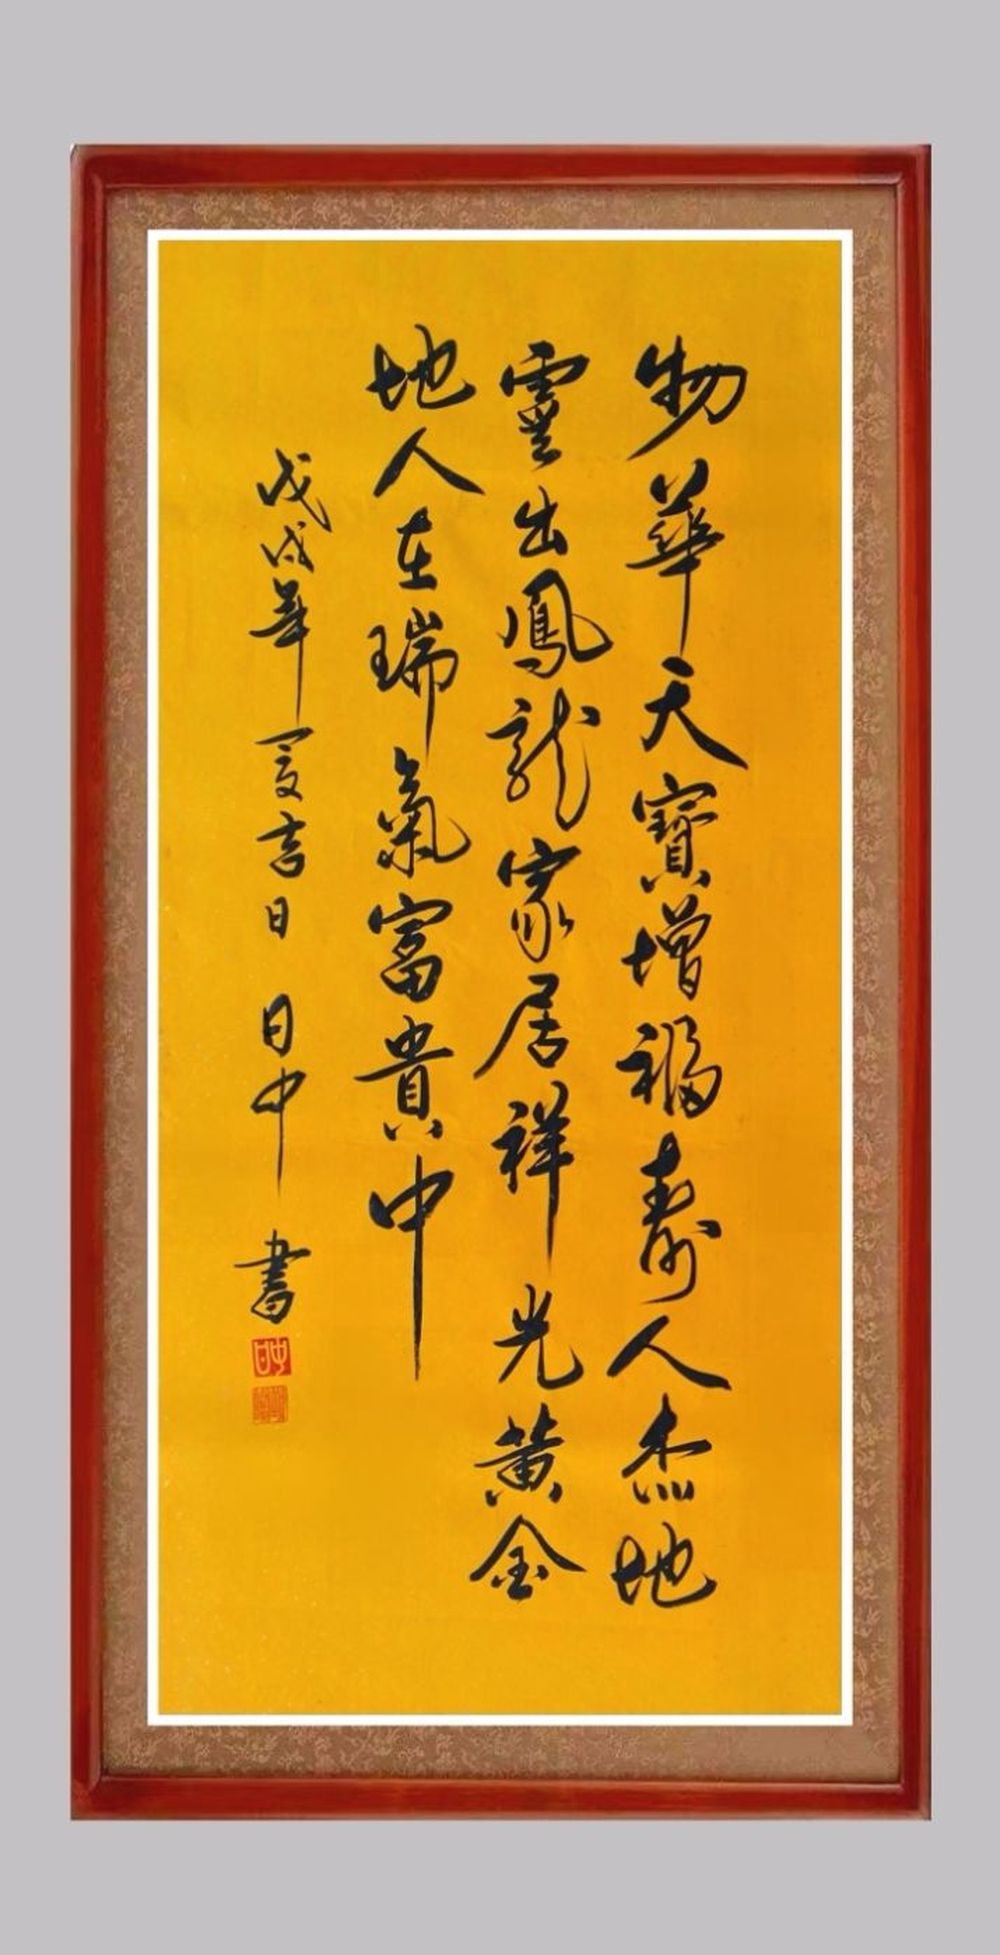 物華天寶增福壽人杰地
靈出鳳龍家居祥光黃金
地人在瑞氣富貴中
戊戌年夏吉日 日中 書